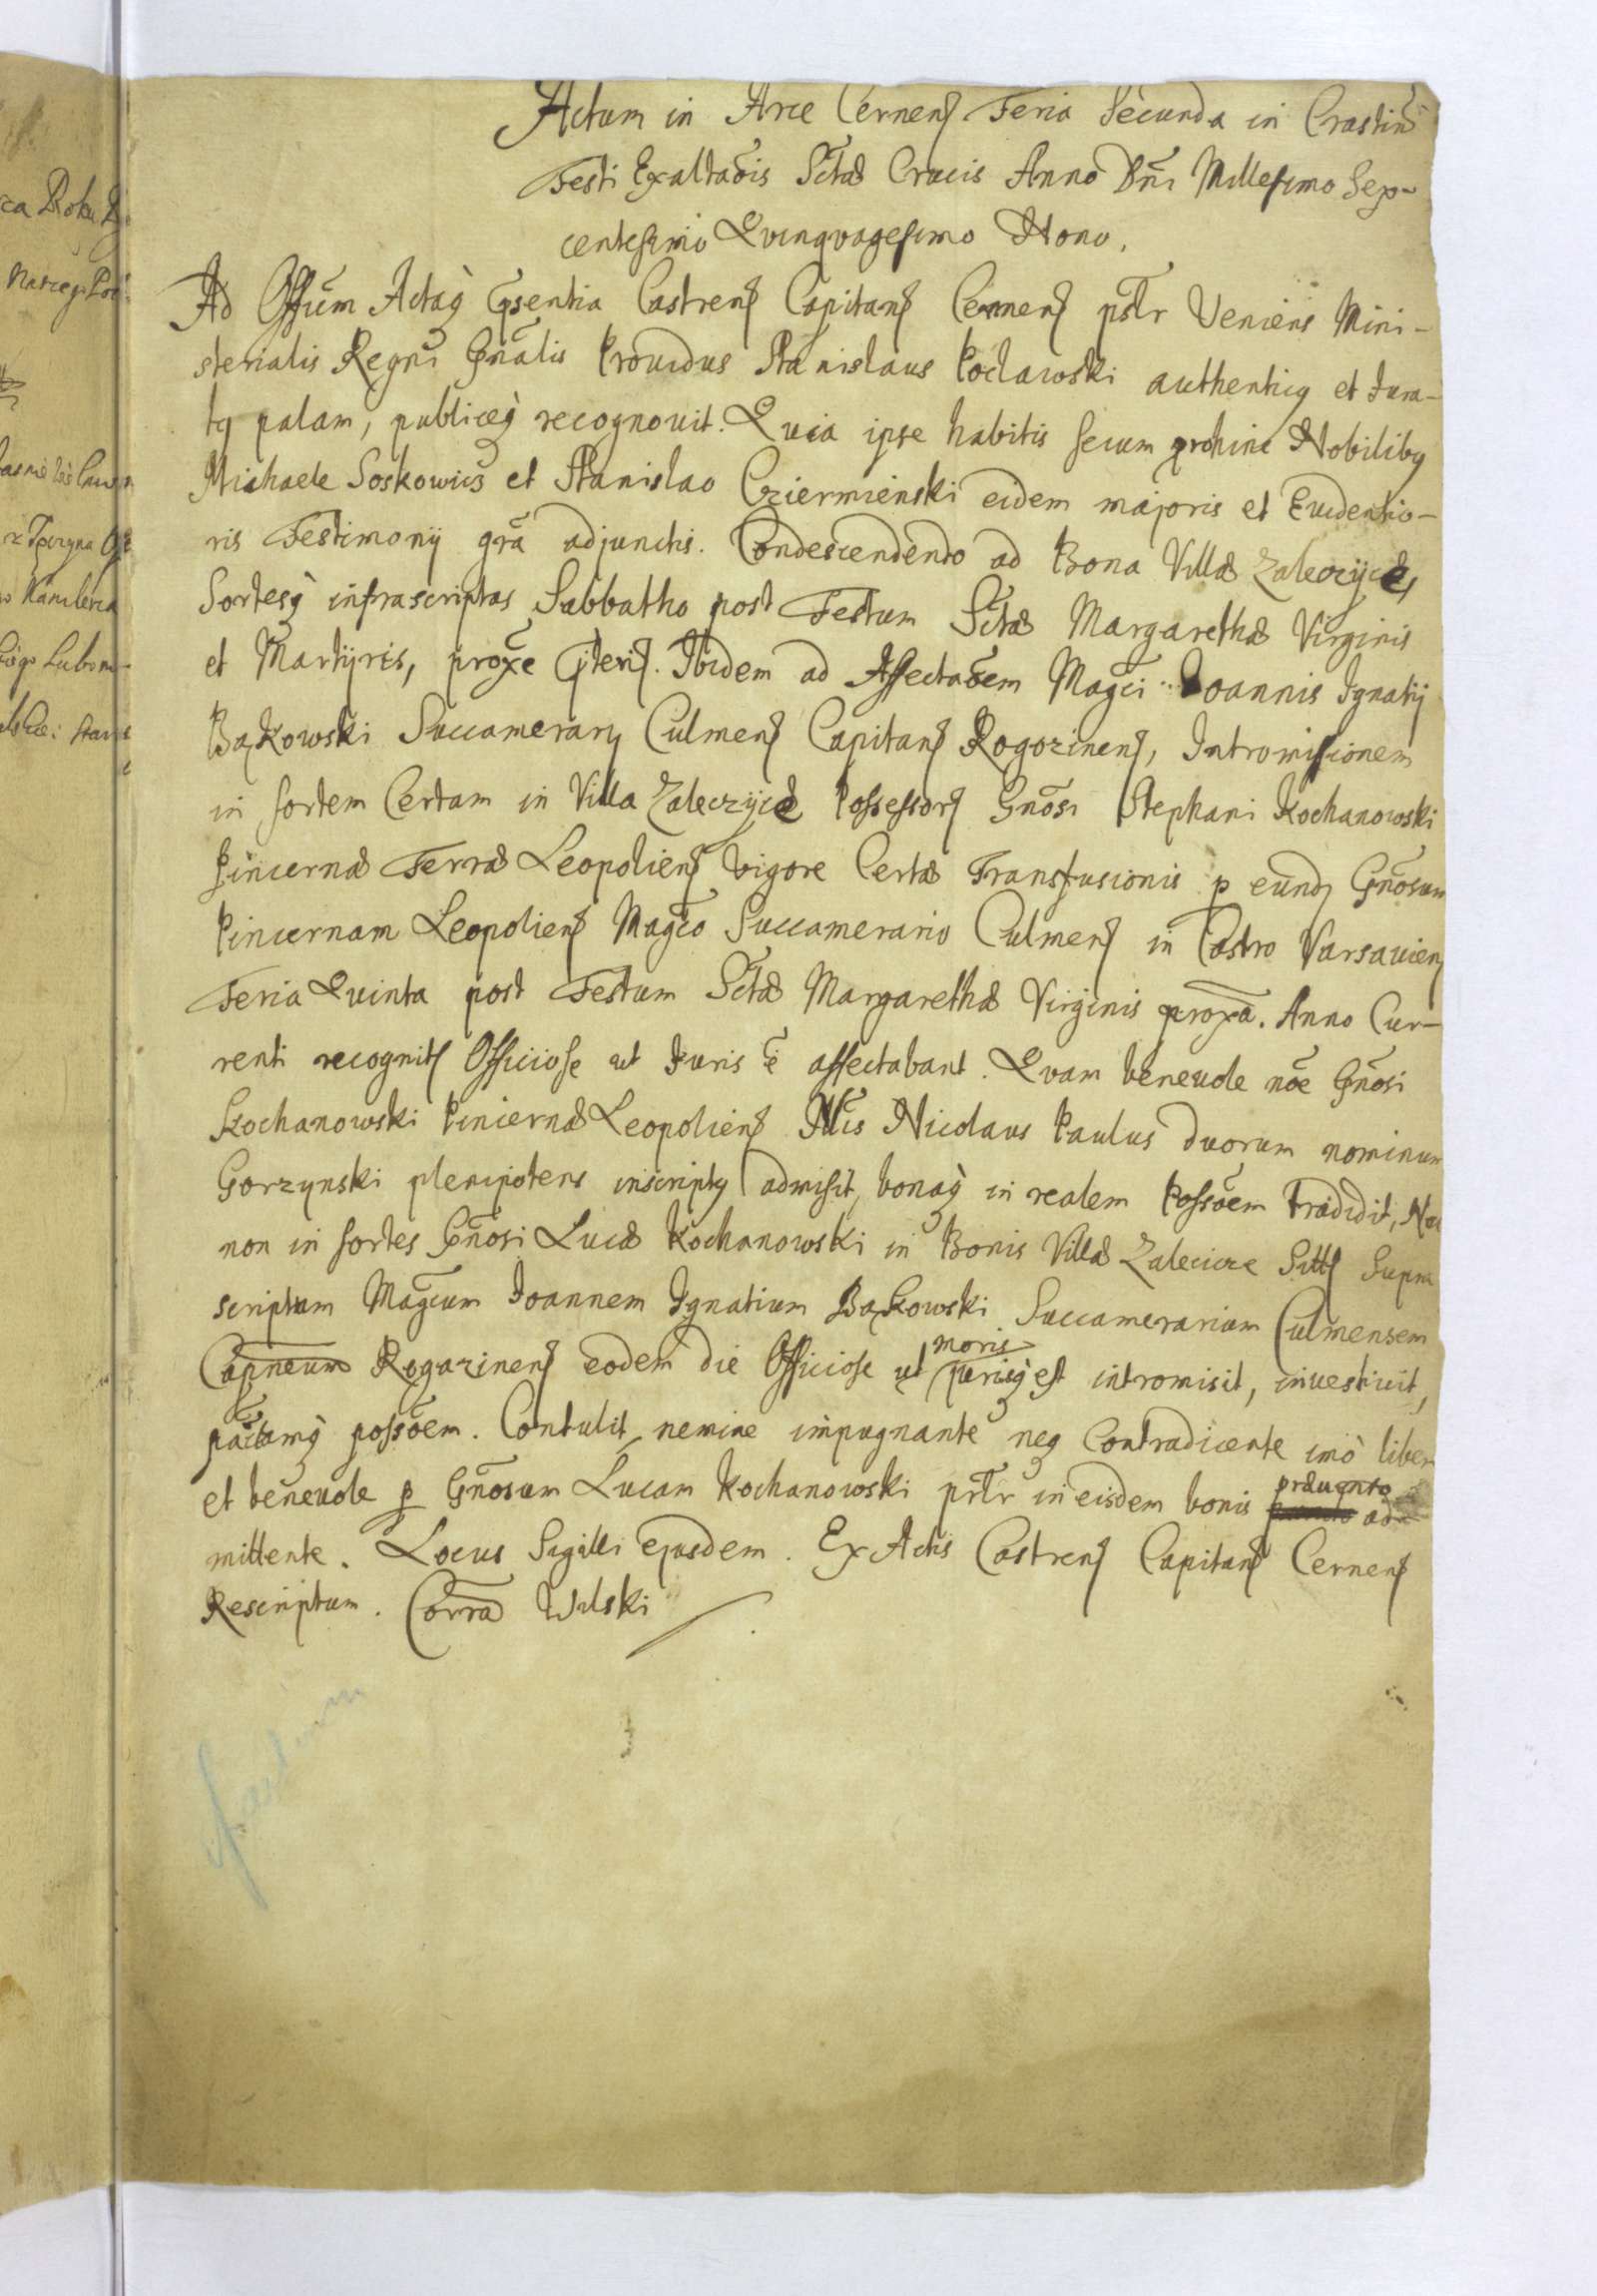 Actum in Arce Cernens Feria Secunda in Crastinõ
Festi Exaltaõis Sctæ Crucis Anno Dñi Millesimo Sex-
centesimo Qvinqvagesimo Nono.
Ad Offũm Actaq́ pñsentia Castrens Capitans Cernens psl̃r Veniens Mini-
sterialis Regni Gñalis Providus Stanislaus Poclawski authenticus et Jura-
tus palam, publiceq́ recognovit. Qvia ipse habitis secum prohinc Nobilibus
Michaele Soskowicz et Stanislao Cziermienski eidem majoris et Evidentio-
ris Testimonij grã adjunctis. Condescendendo ad Bona Villæ Zaleczyce,
Sortesq́ infrascriptas Sabbatho post Festum Sctæ Margarethæ Virginis
et Martyris, proxẽ pteris. Ibidem ad Affectaõem Magci Joannis Ignatij
Bąkowski Succamerarij Culmens Capitans Rogozinens, Intromissionem
in sortem Certam in Villa Zaleczyce Possessoris Gñosi Stephani Kochanowski
Pincernæ Terræ Leopoliens vigore Certæ Transfusionis p eund Gñosum
Pincernam Leopoliens Magco Succamerario Culmens in Castro Varsaviens
Feria Qvinta post Festum Sctæ Margarethæ Virginis proxã. Anno Cur-
renti recognits Officiose ut Juris ẽ affectabant. Qvam benevole nõe Gñosi
Kochanowski Pincernæ Leopoliens Nlis Nicolaus Paulus duorum nominum
Gorzynski plenipotens inscriptus admisit, bonaq́ in realem Possõem Tradidit, Nec
non in sortes Gñosi Lucæ Kochanowski in Bonis Villæ Zalecicze Sitts Supra
scriptum Magcum Joannem Ignatium Bąkowski Succamerarium Culmensem
Capneum Rogozinens eodem die Officiose ut moris jurisq́ est intromisit, investivit,
pactamq́ possõem. Contulit, nemine impugnante neq Contradicente imò libere
et benevole p Gñosum Lucam Kochanowski prl̃r in eisdem bonis prævento ad-
mittente. Locus Sigilli ejusdem. Ex Actis Castrens Capitans Cernens
Rescriptum. Corra Wilski